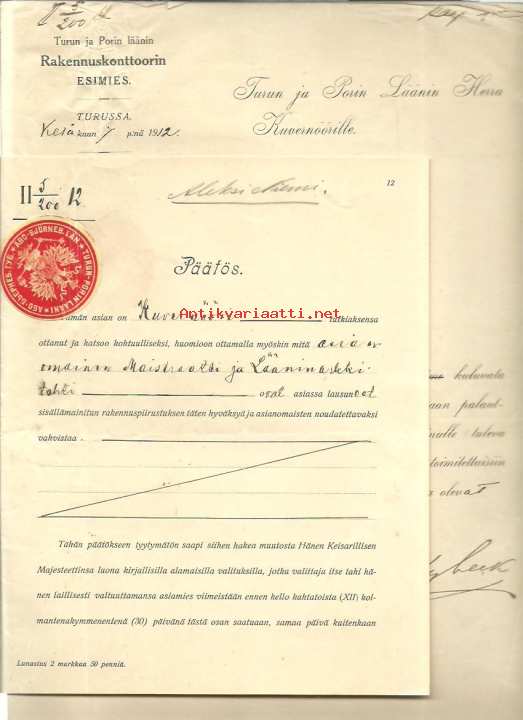 Turun ja Porin läänin
Rakennuskonttoorin
ESIMIES.
TURUSSA,
Kesäkuun 7 p:nä 1912.
Turun ja Porin Läänin Herra
Kuvernöörille.
II 5/200 12
Aleksi Niemi.
12
TURUN-PORIN LÄÄNI
Päätös.
Antikvariaatti.net
Tämän asian on Kuvernööri tutkiaksensa
ottanut ja katsoo kohtuulliseksi, huomioon ottamalla myöskin mitä asia o-
omainen Maistraatti ja Lääninarkki-
tehti ovat asiassa lausuneet
sisällämainitun rakennuspiirustuksen täten hyväksyä ja asianomaisten noudatettavaksi
vahvistaa
kuluvata
aan palaut-
inulle tuleva
toimitettaisiin
s olevat
Tähän päätökseen tyytymätön saapi siihen hakea muutosta Hänen Keisarillisen
Majesteettinsa luona kirjallisilla alamaisilla valituksilla, jotka valittaja itse tahi hä-
nen laillisesti valtuuttamansa asiamies viimeistään ennen kello kahtatoista (XII) kol-
mantenakymmenentenä (30) päivänä tästä osan saatuaan, samaa päivä kuitenkaan
Lunastus 2 markkaa 50 penniä.